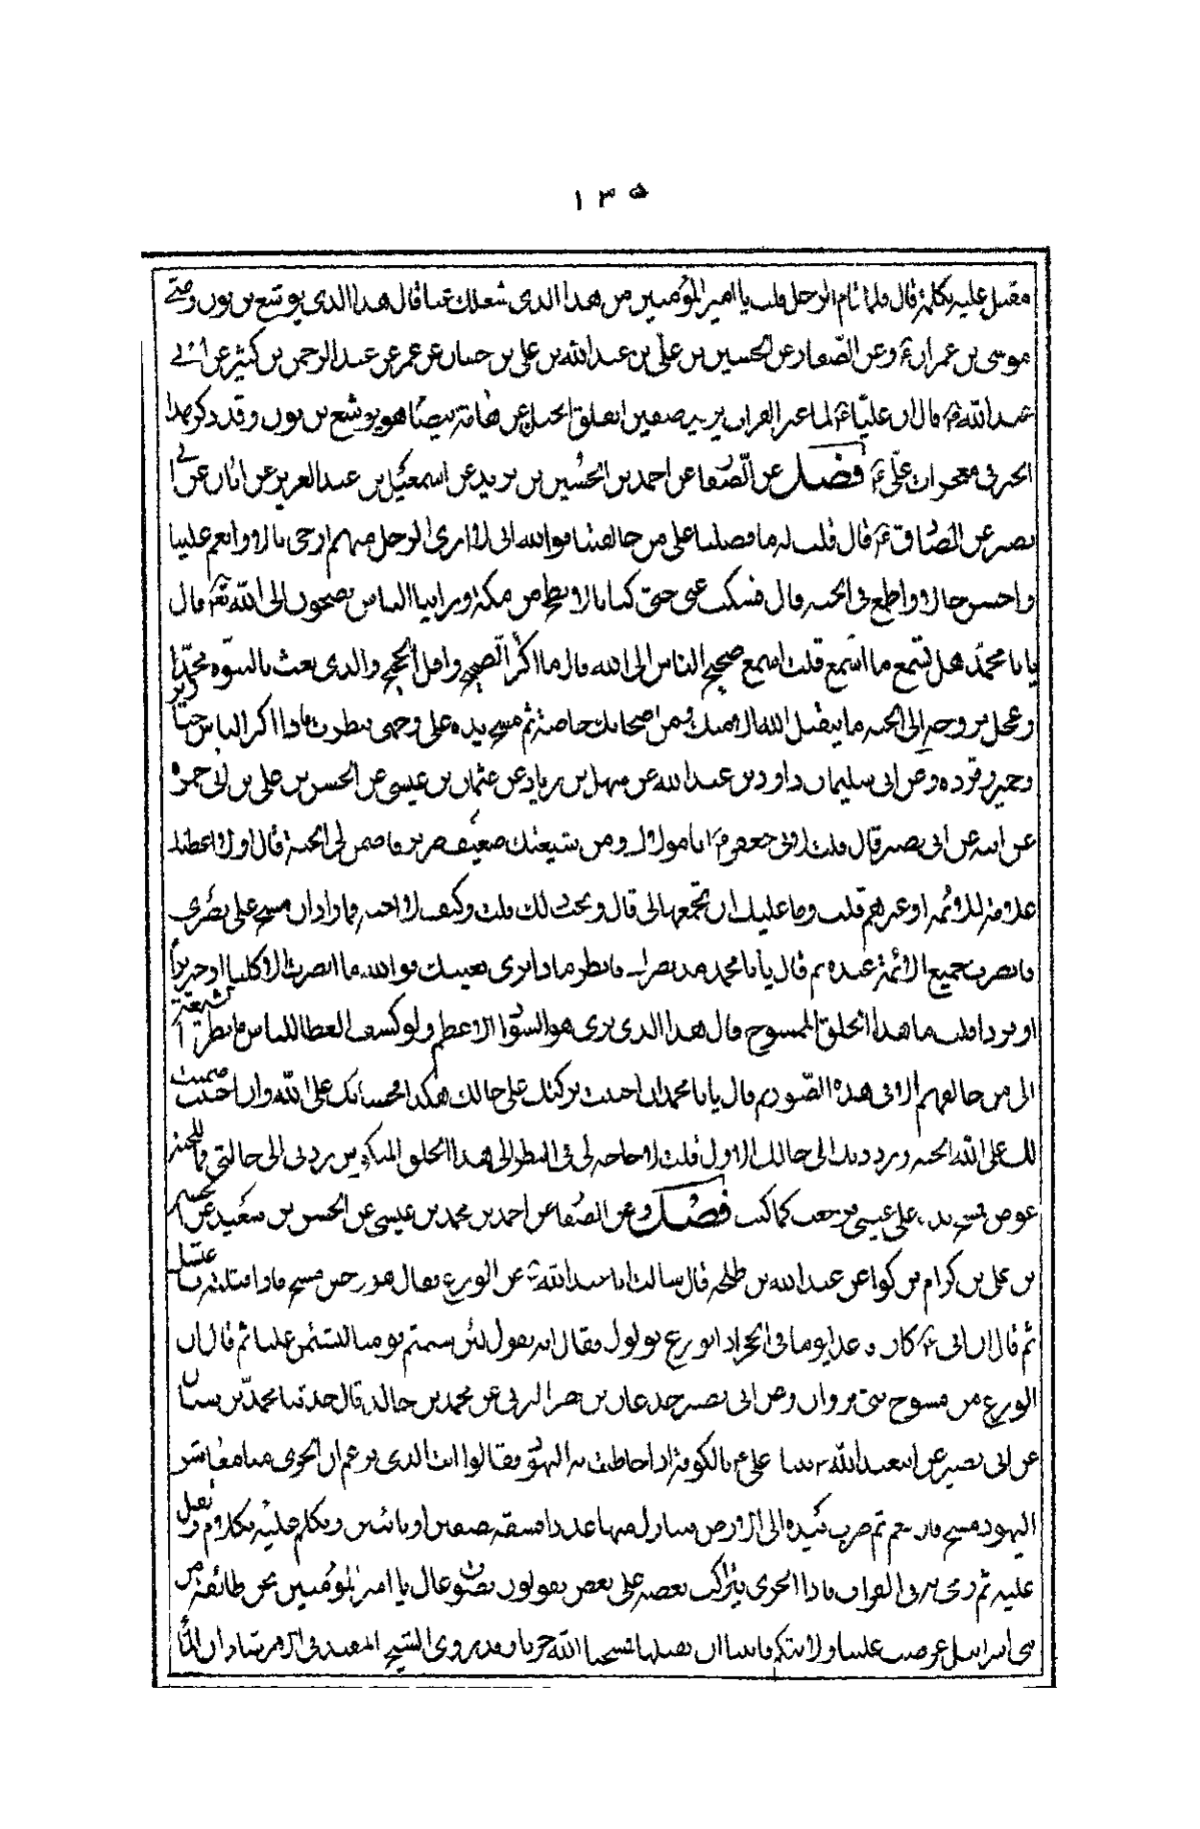 ١٣۵
مقبل عليه يكلمه قال فلما قام الرجل قلت يا امير المؤمنين من هذا الذى شغلك عنا قال هذا الذى يوشع بن نون وصى
موسى بن عمران ؑ وعن الصّفار عن الحسين بن علي بن عبد الله بن علي بن حسان عن عمر عن عبد الرحمن بن كثير عن ابي
عبد الله ؑ قال ان عليّا ؑ لما عبر الفرات يريد صفين انفلق الجبل عن هامة بيضا هو يوشع بن نون وقد ذكر هذا
الخبر فى معجزات علي ؑ فصل عن الصّفار عن احمد بن الحسين بن بريد عن اسمعيل بن عبد العزيز عن ابان عن ابي
بصير عن الصّادق ؑ قال قلت له ما فضلنا على من خالفنا فوالله انى لارى الرجل منهم ارخى بالا وانعم علينا
واحسن حالا واطمع فى الجنه قال فسكت عنى حتى كنا بالابطح من مكة وراينا الناس يضجون الى الله تعالى قال
يا با محمّد هل تسمع ما اسمع قلت اسمع ضجيج الناس الى الله قال ما اكثر الضجيج واقل الحجيج والذى بعث بالنبوّه محمّدا
وعجل بروحه الى الجنه ما يتقبل الله الا منك ومن اصحابك خاصة ثم مسح يده على وجهى فنظرت فاذا اكثر الناس خنازير
وحمير وقرده وعن ابى سليمان داود بن عبد الله عن سهل بن زياد عن عثمان بن عيسى عن الحسن بن علي بن ابى حمزه
عن ابيه عن ابى بصير قال قلت لابى جعفر ؑ انا مولاك ومن شيعتك ضعيف ضرير فاضمن لى الجنة قال اولا اعطيك
علامة الائمه او غيرهم قلت وما عليك ان تجمعها لى قال وتحب ذلك قلت وكيف لا احب فما زاد ان مسح على بصرى
فابصرت جميع الائمة عنده ثم قال يا با محمد مد بصرك فانظر ماذا ترى بعينك فوالله ما ابصرت الا كلبا او خنزيرا
او قردا قلت ما هذا الخلق الممسوخ قال هذا الذى ترى هو السّواد الاعظم ولو كشف الغطا للناس ما نظر الشيعة
الى من خالفهم الا فى هذه الصّورة ثم قال يا با محمد ان احببت تركتك على حالك هكذا فحسابك على الله وان احببت ضمنت
لك على الله الجنه ورددتك الى حالك الاول قلت لا حاجه لى فى النظر الى هذا الخلق المنكوس ردنى الى حالتى فما للجنه
عوض فمسح يده على عينى فرجعت كما كنت فصل وعن الصّفار عن احمد بن محمد بن عيسى عن الحسن بن سعيد عن
بن على بن كرام عن عبد الله بن طلحه قال سالت ابا عبد الله ؑ عن الوزغ فقال هو رجس مسخ فاذا قتلته فاغتسل
ثم قال ان ابى ؑ كان قاعدا يوما فى الحجر اذا بوزغ يولول فقال انه يقول لئن شتمتم قوما لنشتمن عليا ثم قال ان
الوزغ من مسوخ بنى مروان وعن ابى بصير عن محمد بن خالد قال حدثنا محمّد بن سنان
عن ابى بصير عن ابى عبد الله ؑ بينا علي ؑ بالكوفة اذا احاطت به اليهود فقالوا انت الذى تزعم ان الجرى منا معاشر
اليهود مسخ قال نعم ثم ضرب بيده الى الارض فتناول منها عودا فشقه نصفين او باثنين وتكلم عليه بكلام وتفل
عليه ثم رمى به فى الفرات فاذا الجرى يتراكب بعضه على بعض يقولون بصوت عال يا امير المؤمنين نحن طائفة من
بنى اسرائيل عرضت علينا ولايتكم فابينا ان نقبلها فمسخنا الله جريا وقد روى الشيخ المفيد فى